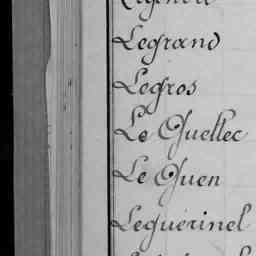 Legrand
Legros
Le Quellec
Le Quen
Leguérinel